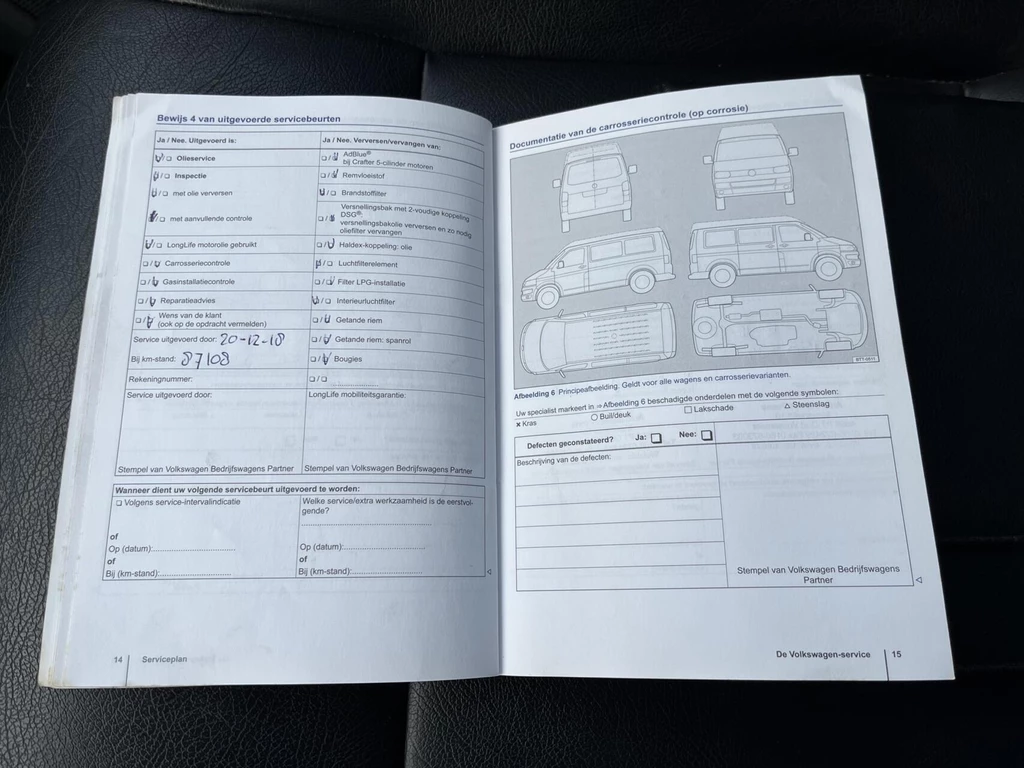 Bewijs 4 van uitgevoerde servicebeurten
Ja / Nee. Uitgevoerd is:
Olieservice
Inspectie
met olie verversen
met aanvullende controle
LongLife motorolie gebruikt
Carrosseriecontrole
Gasinstallatiecontrole
Reparatieadvies
Wens van de klant
(ook op de opdracht vermelden)
Service uitgevoerd door: 20-12-18
Bij km-stand: 87108
Rekeningnummer:
Service uitgevoerd door:
Stempel van Volkswagen Bedrijfswagens Partner
Ja / Nee. Verversen/vervangen van:
AdBlue®
bij Crafter 5-cilinder motoren
Remvloeistof
Brandstoffilter
Versnellingsbak met 2-voudige koppeling
DSG®:
versnellingsbakolie verversen en zo nodig
oliefilter vervangen
Haldex-koppeling: olie
Luchtfilterelement
Filter LPG-installatie
Interieurluchtfilter
Getande riem
Getande riem: spanrol
Bougies
LongLife mobiliteitsgarantie:
Stempel van Volkswagen Bedrijfswagens Partner
Wanneer dient uw volgende servicebeurt uitgevoerd te worden:
Volgens service-intervalindicatie
of
Op (datum):
of
Bij (km-stand):
Welke service/extra werkzaamheid is de eerstvol-
gende?
Op (datum):
of
Bij (km-stand):
14 Serviceplan
Documentatie van de carrosseriecontrole (op corrosie)
Afbeelding 6 Principeafbeelding. Geldt voor alle wagens en carrosserievarianten.
Uw specialist markeert in ⇒ Afbeelding 6 beschadigde onderdelen met de volgende symbolen:
× Kras ○ Buil/deuk □ Lakschade △ Steenslag
Defecten geconstateerd? Ja: □ Nee: □
Beschrijving van de defecten:
Stempel van Volkswagen Bedrijfswagens
Partner
De Volkswagen-service 15